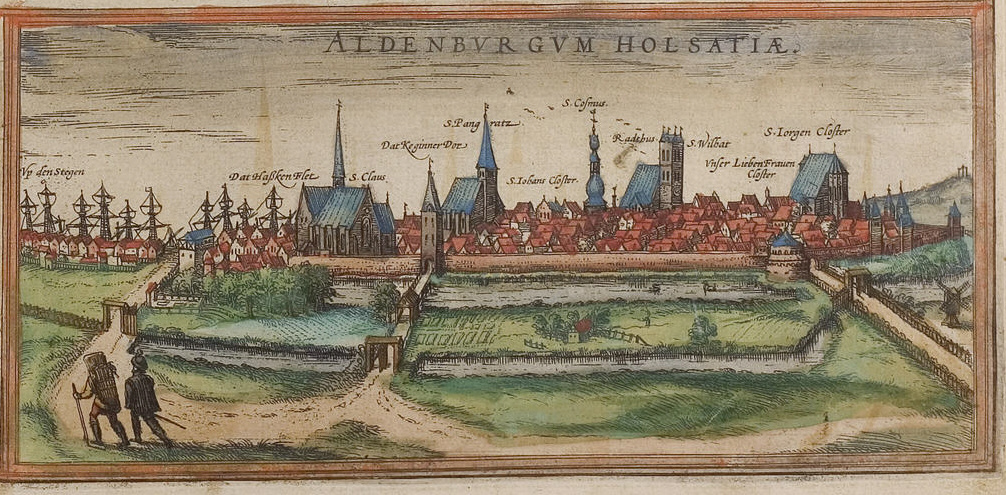 ALDENBVRGVM HOLSATIÆ.
S. Cosmus.
S. Pangratz
Radthus
S. Iorgen Closter
Dat Keginner Dor
S. Wilhat
Vnser Lieben Frauen
Closter
Vp den Stegen
Dat Haßken Flet
S. Claus
S. Iohans Closter.